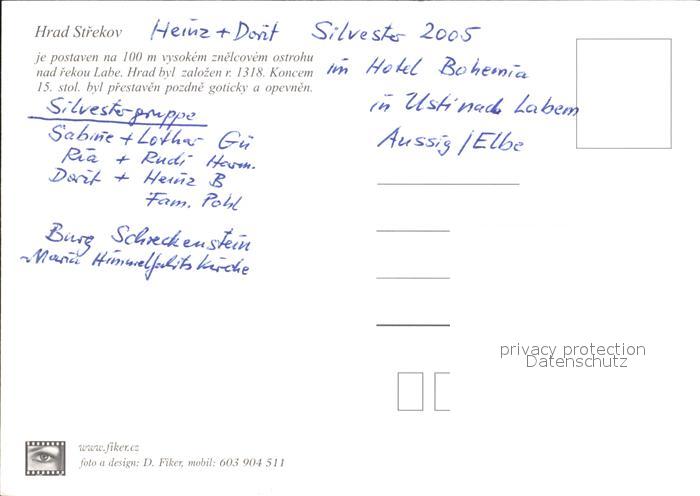 Hrad Střekov
Heinz + Dorit Silvester 2005
je postaven na 100 m vysokém znělcovém ostrohu
im Hotel Bohemia
nad řekou Labe. Hrad byl založen r. 1318. Koncem
15. stol. byl přestavěn pozdně goticky a opevněn.
in Usti nad Labem
Aussig/Elbe
Silvestergruppe
Sabine + Lothar Gü
Ria + Rudi Harm.
Dorit + Heinz B
Fam. Pohl
Burg Schreckenstein
Maria Himmelfahrtskirche
privacy protection
Datenschutz
www.fiker.cz
foto a design: D. Fiker, mobil: 603 904 511